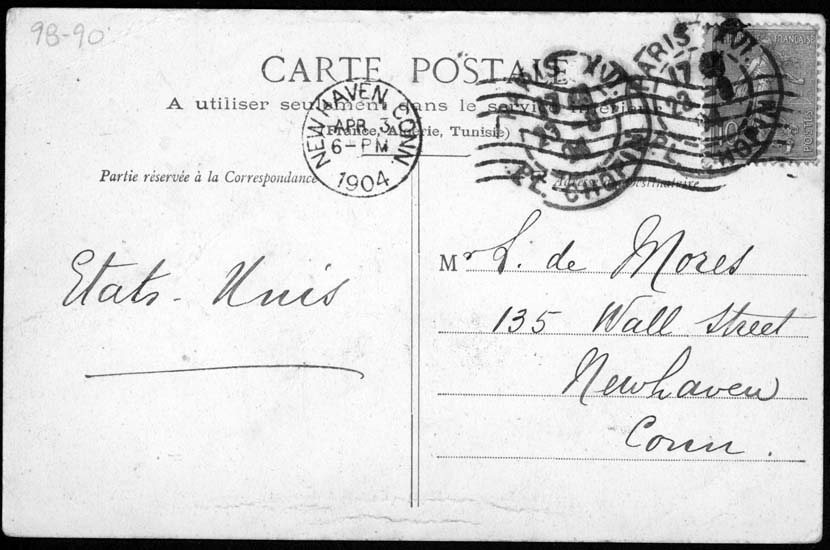 98-90
CARTE POSTALE
A utiliser seulement dans le service
(France, Algérie, Tunisie)
NEW HAVEN, CONN.
APR 3
6-PM
1904
PARIS XVI.
PL. CHOPIN
PARIS XVI.
17
23
PL. CHOPIN
FRANÇAISE
10
POSTES
Partie réservée à la Correspondance
Adresse du Destinataire
Etats-Unis
Mr L. de Mores
135 Wall Street
Newhaven
Conn.